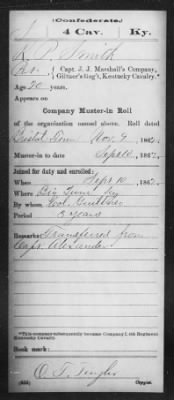 (Confederate.)
S 4 Cav. Ky.
R. P. Smith
Pvt., Capt. J. J. Marshall's Company,
Giltner's Reg't, Kentucky Cavalry.*
Age 20 years.
Appears on
Company Muster-in Roll
of the organization named above. Roll dated
Bristol Tenn Nov. 9, 1862.
Muster-in to date Sept 10, 1862.
Joined for duty and enrolled:
When Sept 10, 1862.
Where Ky
By whom Col. Giltner
Period 3 years
Remarks: Transferred from
Capt Alexander
*This company subsequently became Company I, 4th Regiment
Kentucky Cavalry.
Book mark:
Copyist.